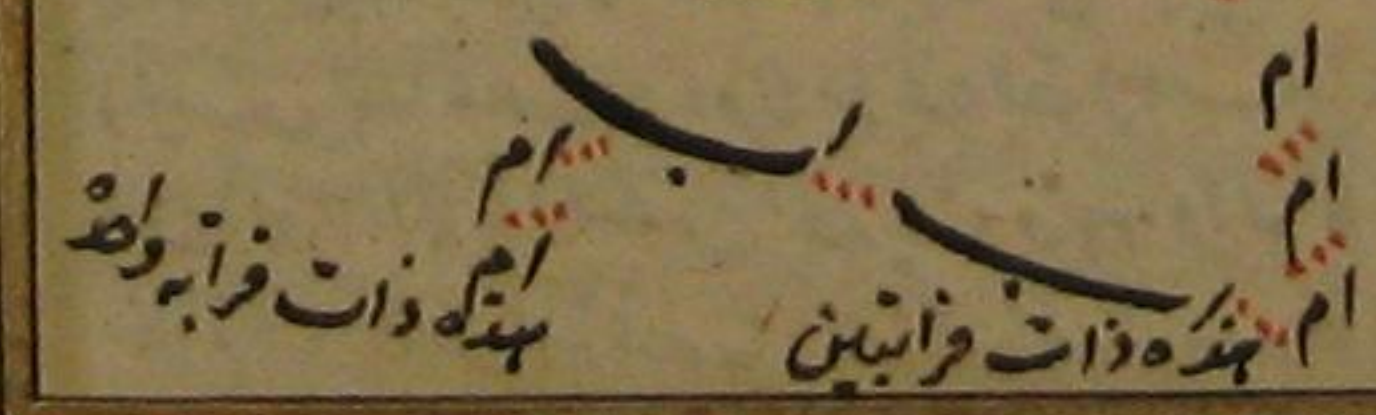 ام
اب
ام
ام
اب
ام
ام
هذه ذات قرابتين
هذه ذات قرابه واحدة